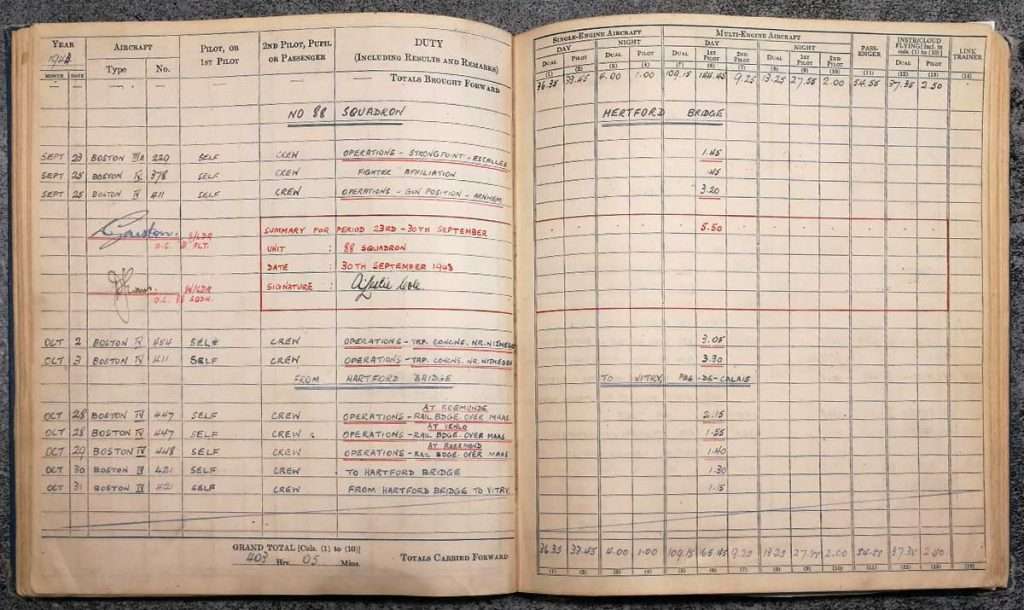 YEAR AIRCRAFT PILOT, OR 1ST PILOT 2ND PILOT, PUPIL OR PASSENGER DUTY (INCLUDING RESULTS AND REMARKS) SINGLE-ENGINE AIRCRAFT MULTI-ENGINE AIRCRAFT PASSENGER INSTR/CLOUD FLYING [Incl. in cols. (1) to (10)] LINK TRAINER
MONTH DATE Type No. DAY NIGHT DAY NIGHT
DUAL PILOT DUAL PILOT DUAL 1ST PILOT 2ND PILOT DUAL 1ST PILOT 2ND PILOT DUAL PILOT
(1) (2) (3) (4) (5) (6) (7) (8) (9) (10) (11) (12) (13) (14)
TOTALS BROUGHT FORWARD 36.35 33.45 6.00 1.00 109.15 9.25 13.25 27.55 2.00 54.55 37.35 2.50
NO 88 SQUADRON HERTFORD BRIDGE
SEPT 23 BOSTON IIIA 220 SELF CREW OPERATIONS - STRONGPOINT - ESCALLES 1.45
SEPT 25 BOSTON IV 378 SELF CREW FIGHTER AFFILIATION .45
SEPT 25 BOSTON IV 411 SELF CREW OPERATIONS - GUN POSITION - ARNHEM 3.20
S/LDR SUMMARY FOR PERIOD 23RD - 30TH SEPTEMBER 5.50
O.C. FLT. UNIT : 88 SQUADRON
DATE : 30TH SEPTEMBER
W/CDR SIGNATURE :
O.C. 88 SQDN.
OCT 2 BOSTON IV 454 SELF CREW OPERATIONS - TRP. CONCNS. NR. NIJMEGEN 3.05
OCT 3 BOSTON IV 411 SELF CREW OPERATIONS - TRP. CONCNS. NR. NIJMEGEN 3.30
FROM HARTFORD BRIDGE TO VITRY, PAS-DE-CALAIS
AT ROERMONDE
OCT 28 BOSTON IV 447 SELF CREW OPERATIONS - RAIL BDGE. OVER MAAS 2.15
AT VENLO
OCT 28 BOSTON IV 447 SELF CREW OPERATIONS - RAIL BDGE. OVER MAAS 1.55
AT ROERMOND
OCT 29 BOSTON IV 448 SELF CREW OPERATIONS - RAIL BDGE OVER MAAS 1.40
OCT 30 BOSTON 421 SELF CREW TO HARTFORD BRIDGE 1.30
OCT 31 BOSTON 421 SELF CREW FROM HARTFORD BRIDGE TO VITRY 1.15
GRAND TOTAL [Cols. (1) to (10)]
403 Hrs. 05 Mins. TOTALS CARRIED FORWARD 36.35 33.45 1.00 109.15 9.25 13.25 2.00 54.55 37.35
(1) (2) (3) (4) (5) (6) (7) (8) (9) (10) (11) (12) (13) (14)